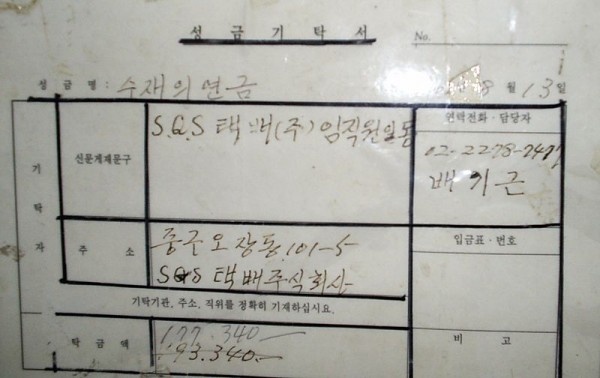 성금기탁서
No.
성 금 명 : 수재의연금
8 월 13 일
기탁자
신문게재문구
S.Q.S 택배(주) 임직원일동
연락전화 · 담당자
02-2278-7477
배기근
주 소
중구 오장동 101-5
SQS 택배주식회사
입금표 · 번호
기탁기관, 주소, 직위를 정확히 기재하십시요.
탁 금 액
177.340
93.340
비 고